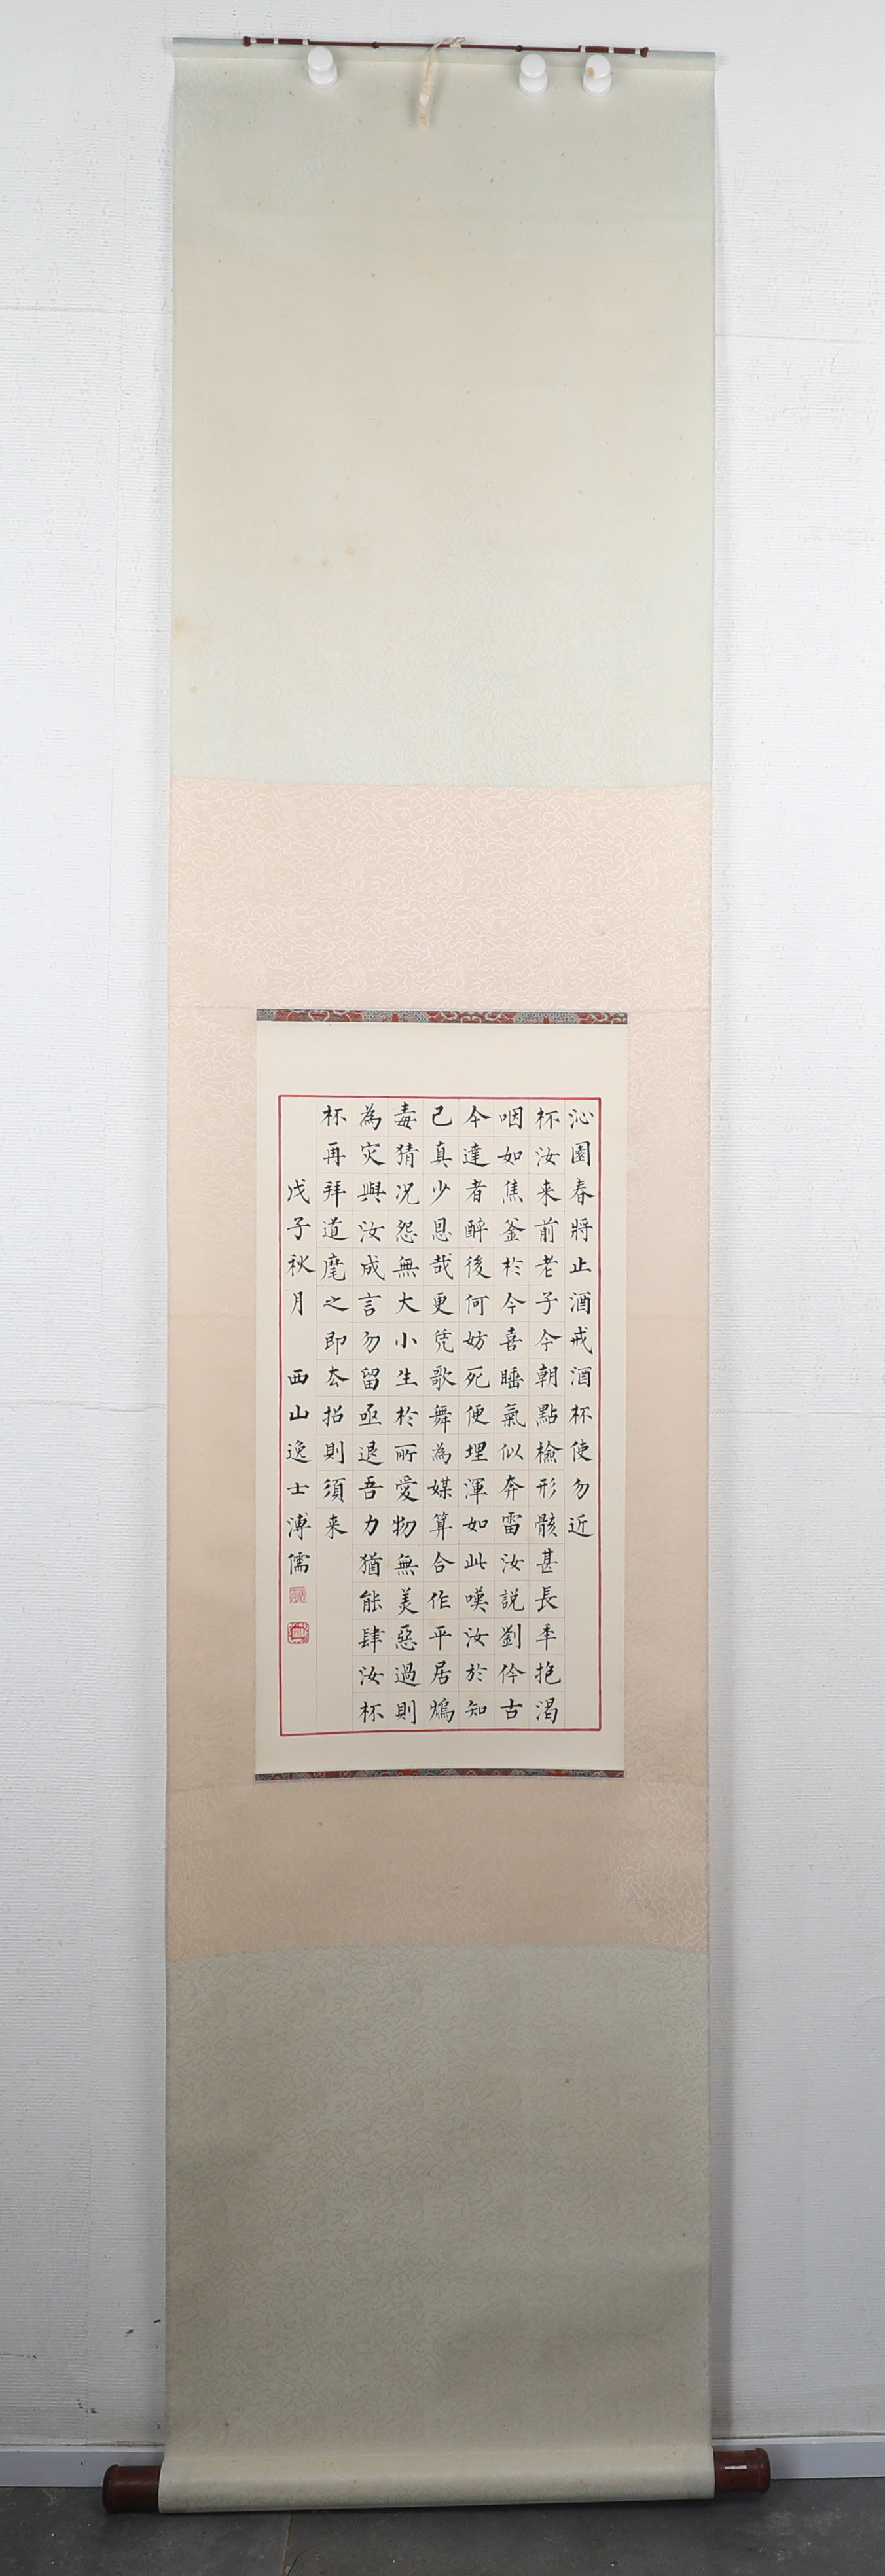 沁園春將止酒戒酒杯使勿近
杯汝来前老子今朝點檢形骸甚長年抱渴
咽如焦釜於今喜睡氣似奔雷汝説劉伶古
今達者醉後何妨死便埋渾如此嘆汝於知
己真少恩哉更凭歌舞為媒算合作平居鴆
毒猜况怨無大小生於所愛物無美惡過則
為灾與汝成言勿留亟退吾力猶能肆汝杯
杯再拜道麾之即去招則須来
戊子秋月 西山逸士溥儒